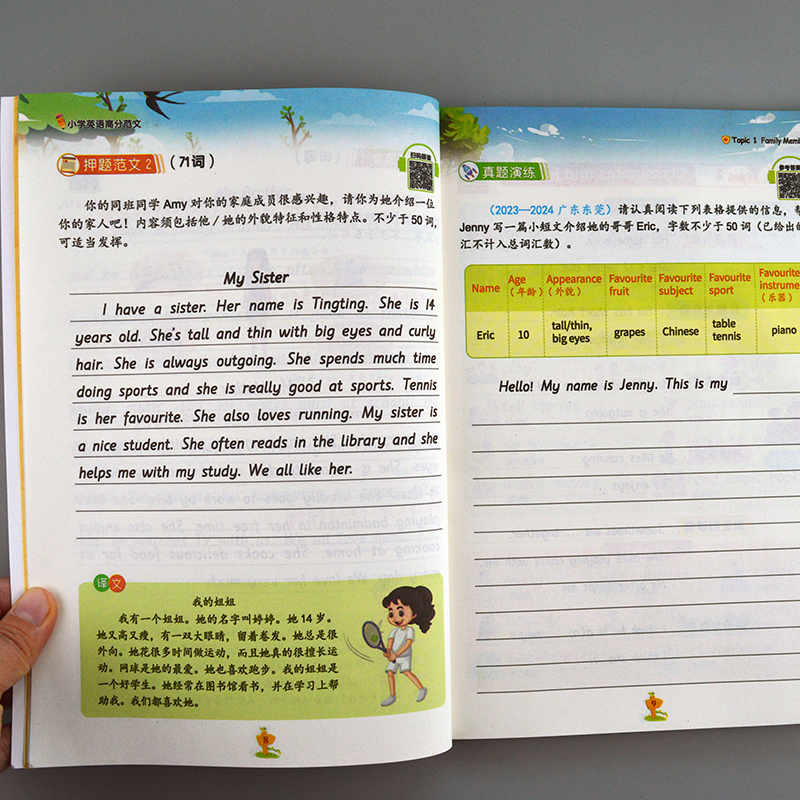 小学英语高分范文
押题范文2 (71词)
扫码跟读
你的同班同学 Amy 对你的家庭成员很感兴趣，请你为她介绍一位
你的家人吧！内容须包括他/她的外貌特征和性格特点。不少于 50 词，
可适当发挥。
My Sister
I have a sister. Her name is Tingting. She is 14
years old. She's tall and thin with big eyes and curly
hair. She is always outgoing. She spends much time
doing sports and she is really good at sports. Tennis
is her favourite. She also loves running. My sister is
a nice student. She often reads in the library and she
helps me with my study. We all like her.
译文
我的姐姐
我有一个姐姐。她的名字叫婷婷。她 14 岁。
她又高又瘦，有一双大眼睛，留着卷发。她总是很
外向。她花很多时间做运动，而且她真的很擅长运
动。网球是她的最爱。她也喜欢跑步。我的姐姐是
一个好学生。她经常在图书馆看书，并在学习上帮
助我。我们都喜欢她。
8
Topic 1 Family
真题演练
参考答案
(2023—2024 广东东莞) 请认真阅读下列表格提供的信息，
Jenny 写一篇小短文介绍她的哥哥 Eric，字数不少于 50 词（已给出的
汇不计入总词汇数）。
Name Age (年龄) Appearance (外貌) Favourite fruit Favourite subject Favourite sport Favourite (乐器)
Eric 10 tall/thin, big eyes grapes Chinese table tennis piano
Hello! My name is Jenny. This is my
9